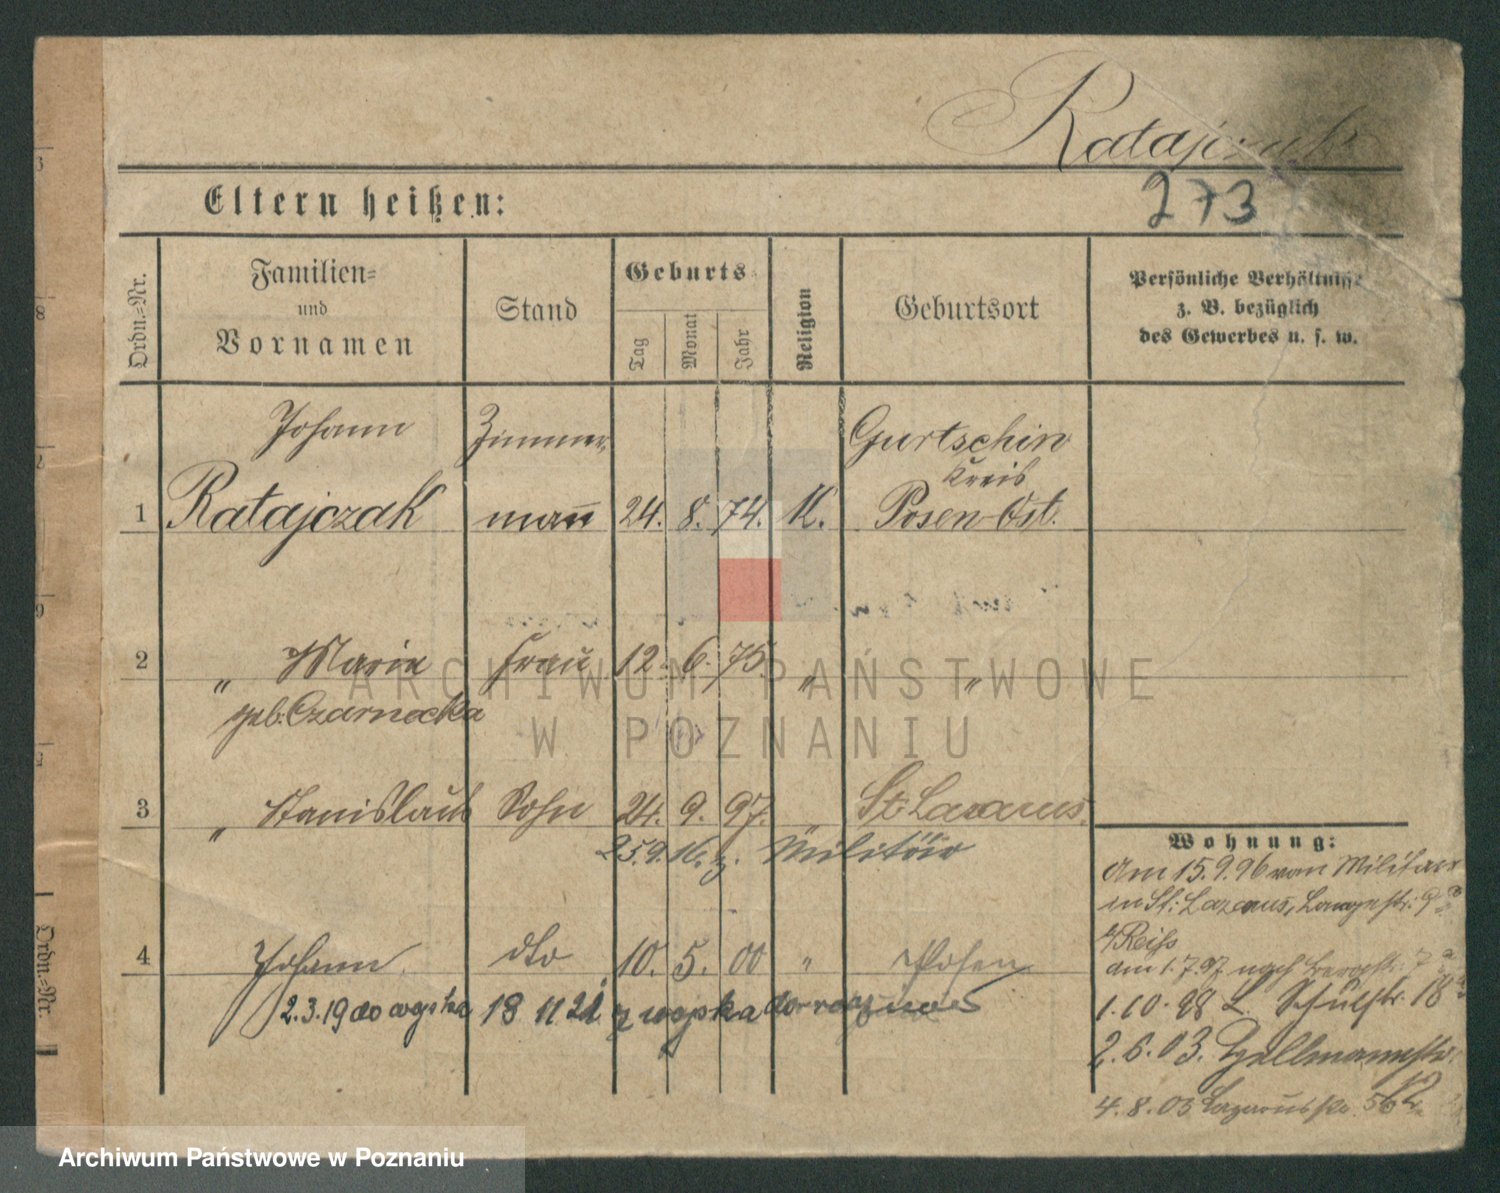 Ratajczak
273
Eltern heißen:
Ordn.-Nr.
Familien-
und
Vornamen
Stand
Geburts
Tag
Monat
Jahr
Religion
Geburtsort
Persönliche Verhältnisse
z. B. bezüglich
des Gewerbes u. s. w.
Johann Zimmer- Gurtschin
Kreis
1 Ratajczak mann 24. 8. 74. K. Posen-Ost.
2 " Marie Frau 12. 6. 75. " "
geb. Czarnecka
3 " Stanislaus Sohn 24. 9. 97. " St. Lazarus.
25.9.16. z. Militär
4 Johann dto 10. 5. 00 " Posen
2.3.19 do wojska 18 11 21 z wojska
Wohnung:
Am 15.9.96 vom Militär
in St. Lazarus, Langestr. 9
b/Reiss
am 1.7.97 nach 7
1.10.98 L. Schulstr. 18
2.6.03.
4.8.03 Lazarusstr.
Ordn.-Nr.
ARCHIWUM PAŃSTWOWE
W POZNANIU
Archiwum Państwowe w Poznaniu